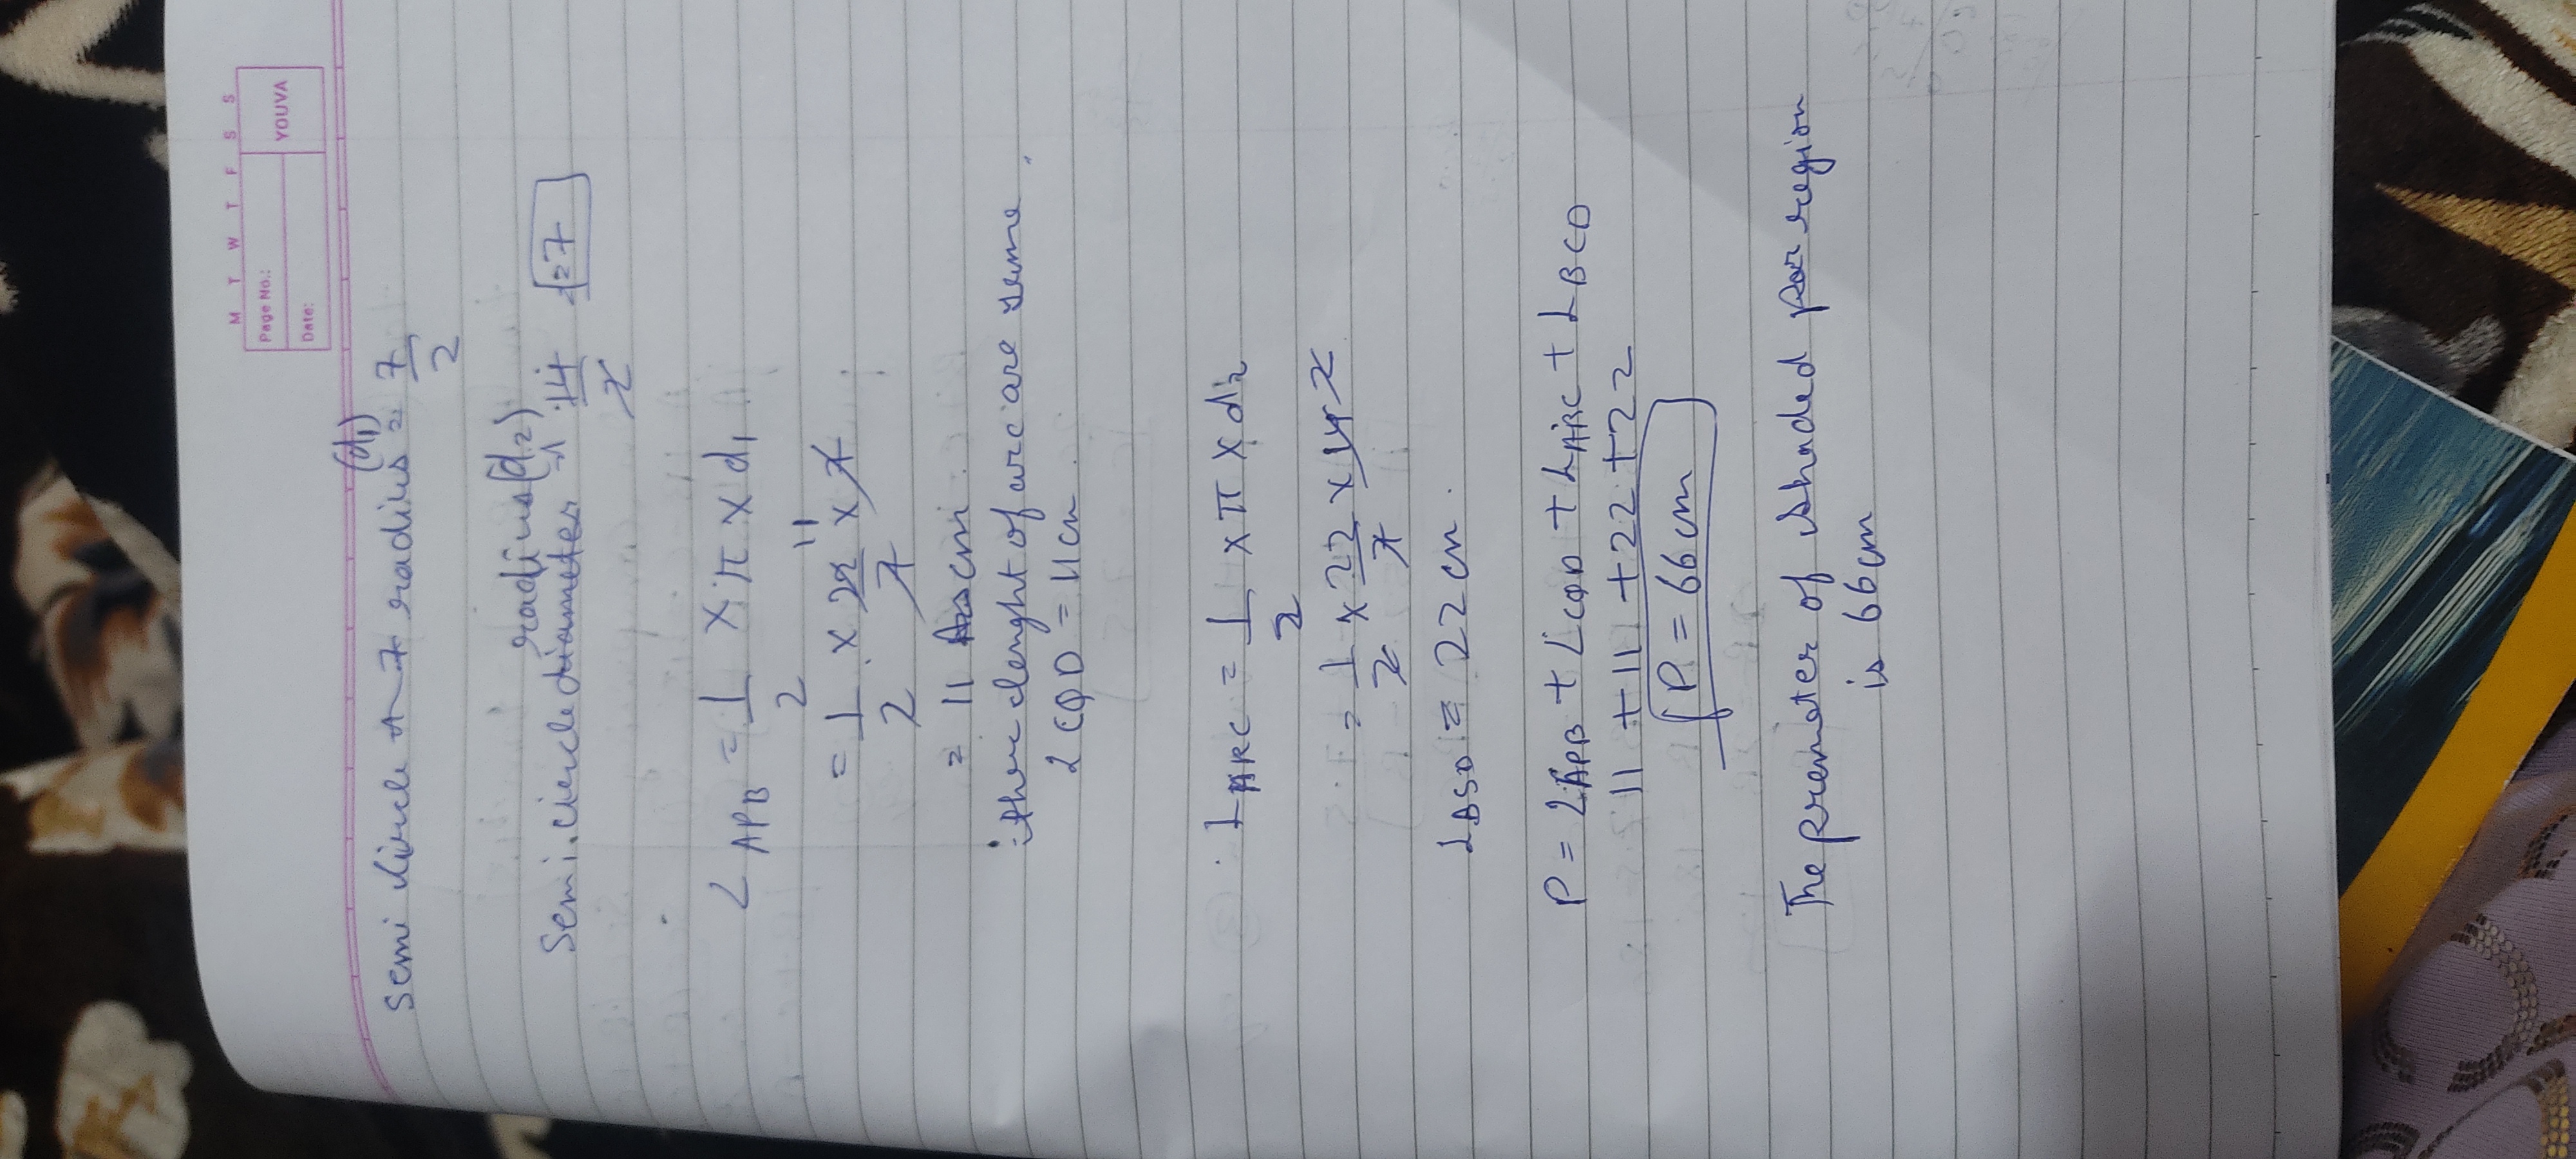 M T W T F S S
Page No.:
Date:
YOUVA
(d1)
Semi circle → 7 radius = 7/2
radius(d2)
Semi.circle diameter → 14/2 =7
L APB = 1/2 x π x d1
= 1/2 x 22/7 x 7 11
= 11 cm
∴ there lenght of arc are seme.
L CQD = 11cm
L ARC = 1/2 x π x d2
= 1/2 x 22/7 x 14 2
L BSD = 22 cm.
P = LAPB + LCQD + LARC + LBCD
11 + 11 + 22 + 22
P = 66cm
The premeter of shaded par region
is 66cm